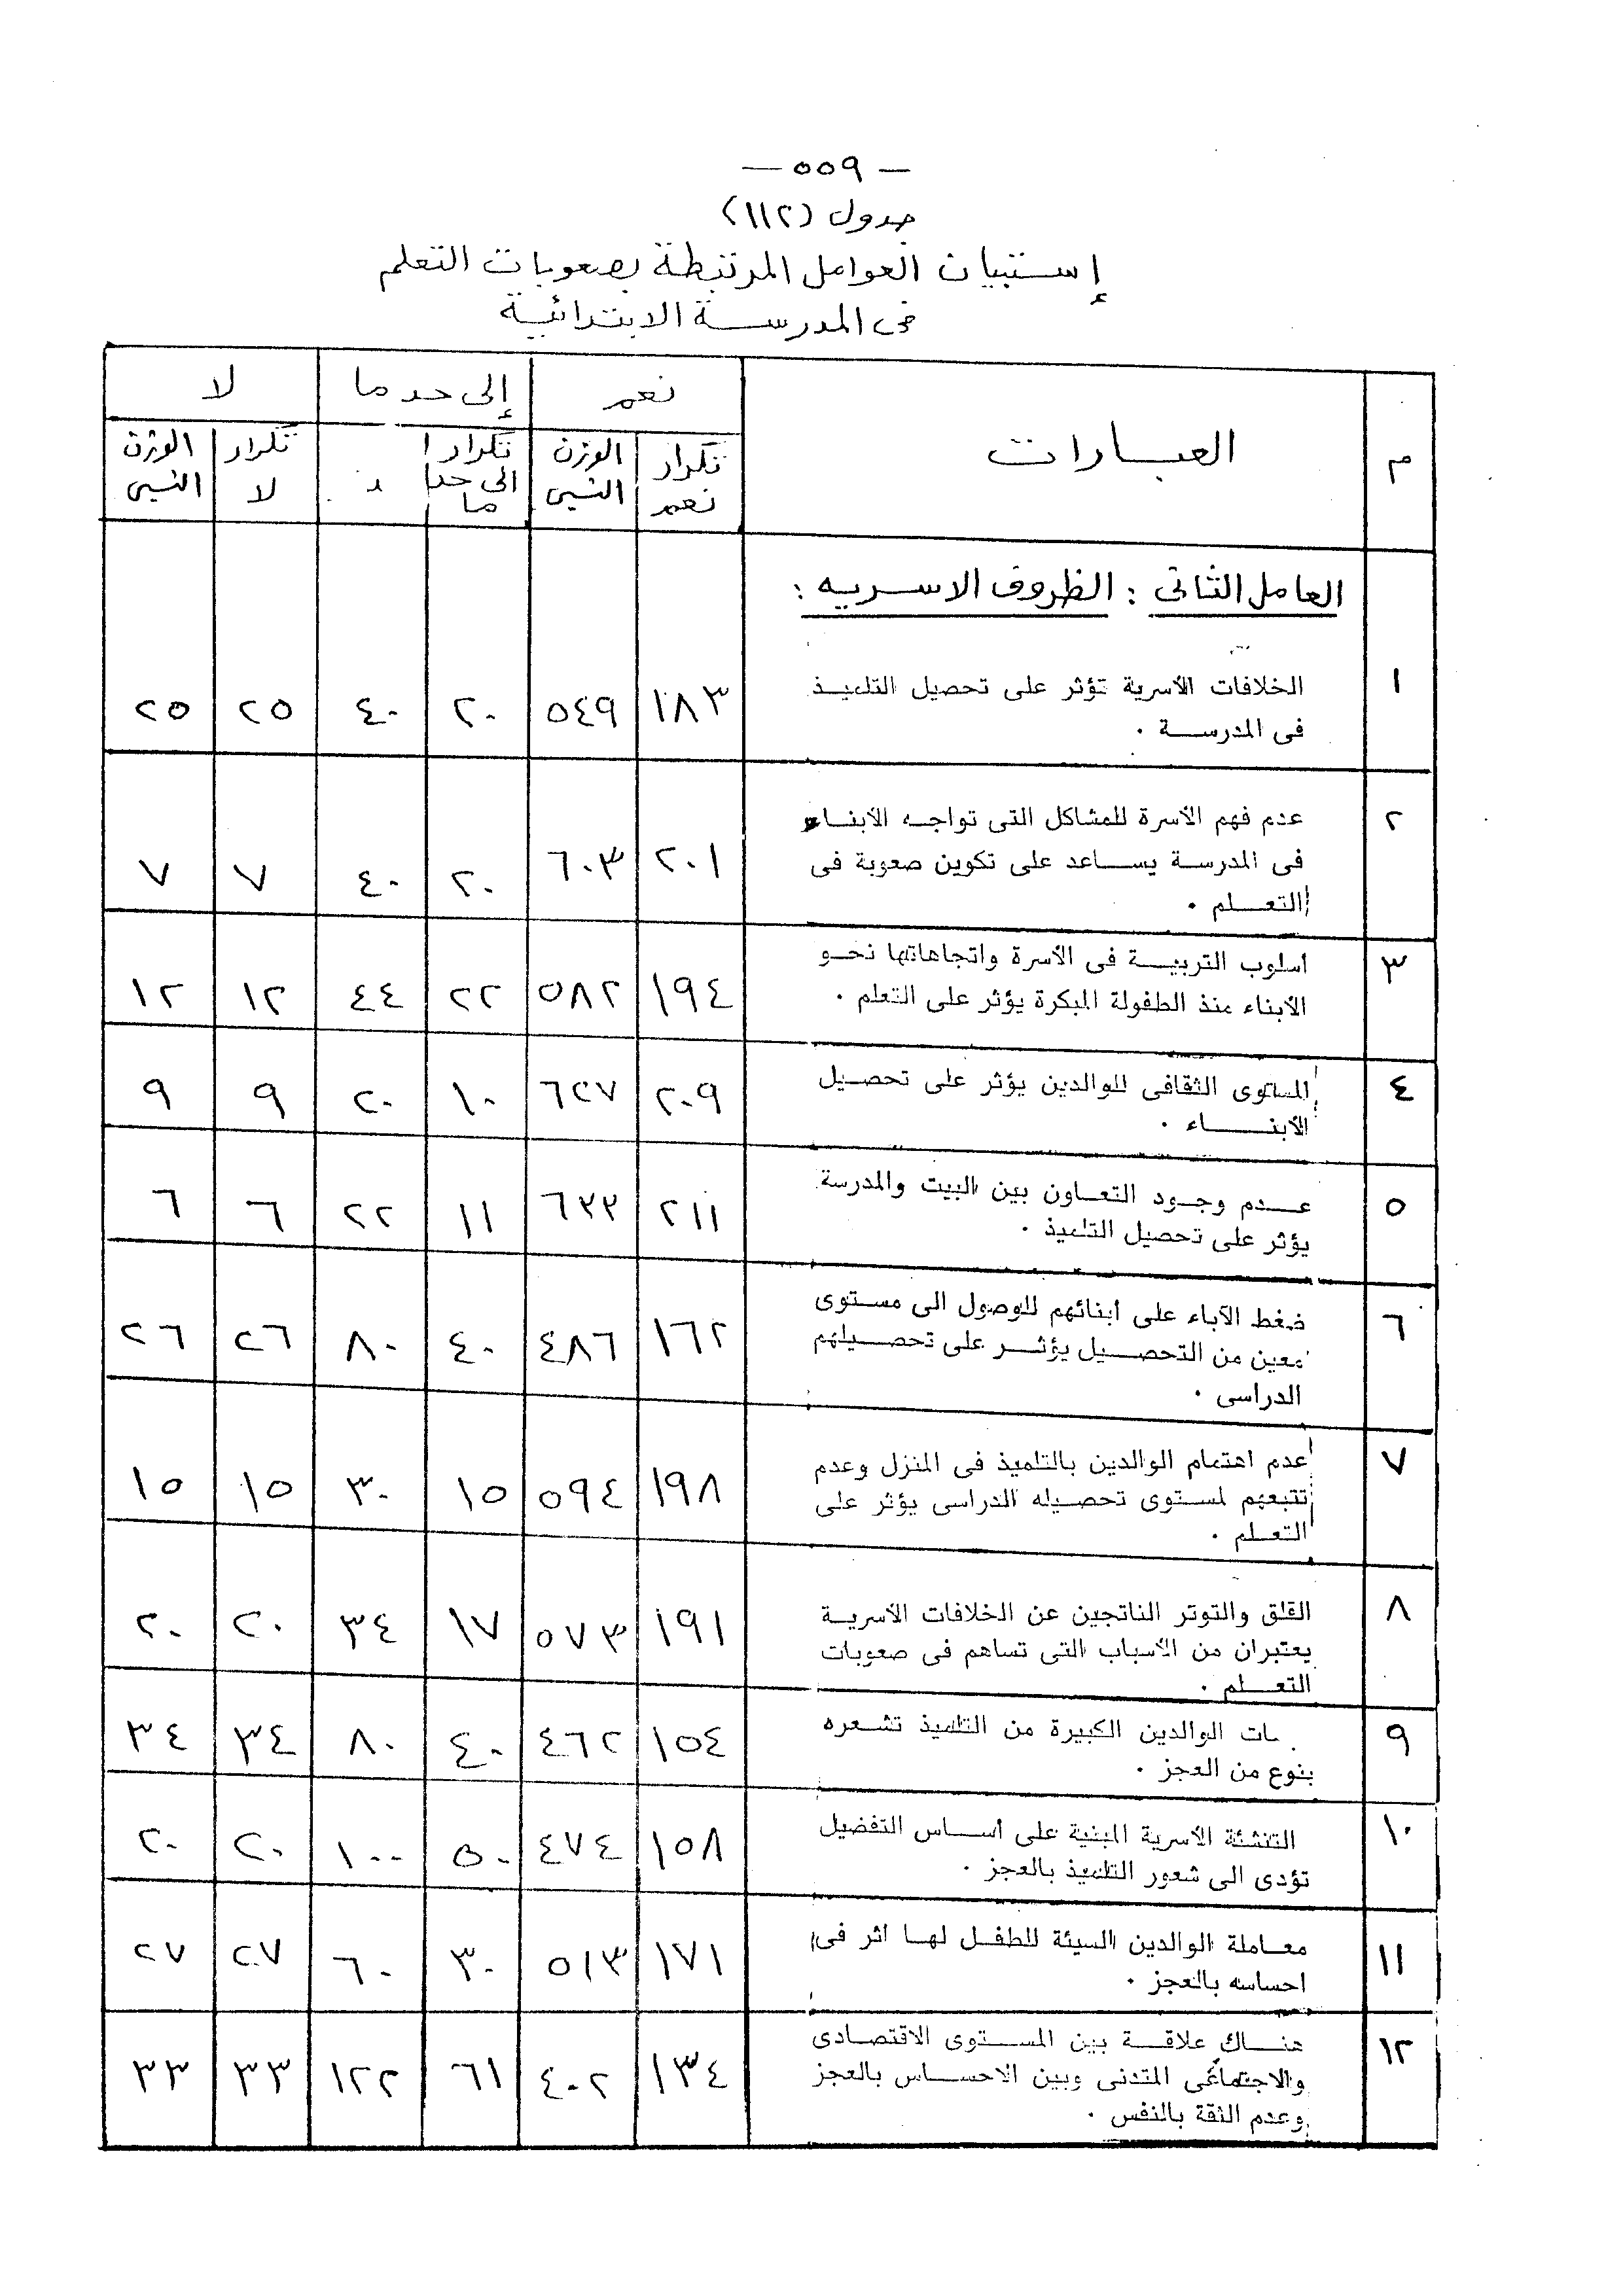 — ٥٥٩ —
جدول (١١٢)
إستبيان العوامل المرتبطة بصعوبات التعلم
فى المدرسة الابتدائية
م العبارات نعم إلى حد ما لا
تكرار نعم الوزن النسبى تكرار الى حد ما تكرار لا الوزن النسبى
العامل الثانى : الظروف الاسريه :
١ الخلافات الأسرية تؤثر على تحصيل التلميذ
فى المدرسة . ١٨٣ ٥٤٩ ٢٠ ٤٠ ٢٥ ٢٥
٢ عدم فهم الأسرة للمشاكل التى تواجه الأبناء
فى المدرسة يساعد على تكوين صعوبة فى
التعلم . ٢٠١ ٦٠٣ ٢٠ ٤٠ ٧ ٧
٣ أسلوب التربية فى الأسرة واتجاهاتها نحو
الأبناء منذ الطفولة المبكرة يؤثر على التعلم . ١٩٤ ٥٨٢ ٢٢ ٤٤ ١٢ ١٢
٤ المستوى الثقافى للوالدين يؤثر على تحصيل
الأبناء . ٢٠٩ ٦٢٧ ١٠ ٢٠ ٩ ٩
٥ عدم وجود التعاون بين البيت والمدرسة
يؤثر على تحصيل التلميذ . ٢١١ ٦٣٣ ١١ ٢٢ ٦ ٦
٦ ضغط الآباء على أبنائهم للوصول الى مستوى
معين من التحصيل يؤثر على تحصيلهم
الدراسى . ١٦٢ ٤٨٦ ٤٠ ٨٠ ٢٦ ٢٦
٧ عدم اهتمام الوالدين بالتلميذ فى المنزل وعدم
تتبعهم لمستوى تحصيله الدراسى يؤثر على
التعلم . ١٩٨ ٥٩٤ ١٥ ٣٠ ١٥ ١٥
٨ القلق والتوتر الناتجين عن الخلافات الأسرية
يعتبران من الأسباب التى تساهم فى صعوبات
التعلم . ١٩١ ٥٧٣ ١٧ ٣٤ ٢٠ ٢٠
٩ الوالدين الكبيرة من التلميذ تشعره
بنوع من العجز . ١٥٤ ٤٦٢ ٤٠ ٨٠ ٣٤ ٣٤
١٠ التنشئة الأسرية المبنية على أساس التفضيل
تؤدى الى شعور التلميذ بالعجز . ١٥٨ ٤٧٤ ٥٠ ١٠٠ ٢٠ ٢٠
١١ معاملة الوالدين السيئة للطفل لها اثر فى
احساسه بالعجز . ١٧١ ٥١٣ ٣٠ ٦٠ ٢٧ ٢٧
١٢ هناك علاقة بين المستوى الاقتصادى
والاجتماعى المتدنى وبين الاحساس بالعجز
وعدم الثقة بالنفس . ١٣٤ ٤٠٢ ٦١ ١٢٢ ٣٣ ٣٣